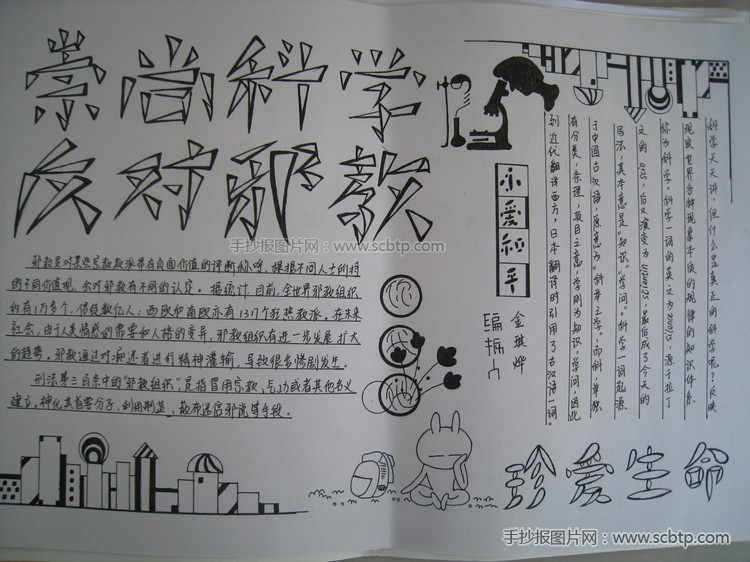 崇尚科学
反对邪教
手抄报图片网：www.scbtp.com
邪教是对某些宗教教派带有负面价值的评断称呼，根据不同人士所持
的不同价值观，会对邪教有不同的认定。据统计，目前，全世界邪教组织
约有1万多个，信徒数亿人；西欧和南欧亦有1317个狂热教派，在未来
社会，由于人类情感的需要和人格的变异，邪教组织有进一步发展扩大
的趋势。邪教通过对痴迷者进行精神灌输，导致很多惨剧发生。
刑法第三百条中的“邪教组织”是指冒用宗教、气功或者其他名义
建立，神化其首要分子，利用制造、散布迷信邪说等手段。
科学天天讲，但什么是真正的科学呢？反映
现实世界各种现象本质的规律的知识体系
称为科学。科学一词的英文为，源于拉丁
文的，后又演变为，最后成了今天的
写法，其本意是“知识”“学问”。科学一词起源
于中国古汉语，原意为“科举之学”。而科，单独
有分类、条理、项目之意，学则为知识、学问。因此
到近代翻译西方，日本翻译时引用了古汉语一词。
小爱和平
编者
金琪烨
珍爱生命
手抄报图片网：www.scbtp.com